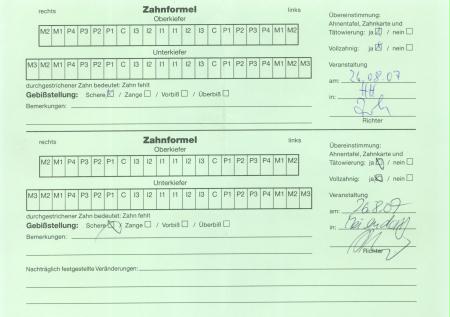 rechts Zahnformel links
Oberkiefer
M2 M1 P4 P3 P2 P1 C I3 I2 I1 I1 I2 I3 C P1 P2 P3 P4 M1 M2
Unterkiefer
M3 M2 M1 P4 P3 P2 P1 C I3 I2 I1 I1 I2 I3 C P1 P2 P3 P4 M1 M2 M3
durchgestrichener Zahn bedeutet: Zahn fehlt
Gebißstellung: Schere / Zange / Vorbiß / Überbiß
Bemerkungen:
Übereinstimmung:
Ahnentafel, Zahnkarte und
Tätowierung: ja / nein
Vollzahnig: ja / nein
Veranstaltung
am: 26.08.07
in: HH
Richter
rechts Zahnformel links
Oberkiefer
M2 M1 P4 P3 P2 P1 C I3 I2 I1 I1 I2 I3 C P1 P2 P3 P4 M1 M2
Unterkiefer
M3 M2 M1 P4 P3 P2 P1 C I3 I2 I1 I1 I2 I3 C P1 P2 P3 P4 M1 M2 M3
durchgestrichener Zahn bedeutet: Zahn fehlt
Gebißstellung: Schere / Zange / Vorbiß / Überbiß
Bemerkungen:
Übereinstimmung:
Ahnentafel, Zahnkarte und
Tätowierung: ja / nein
Vollzahnig: ja / nein
Veranstaltung
am: 26.8.07
in:
Richter
Nachträglich festgestellte Veränderungen: